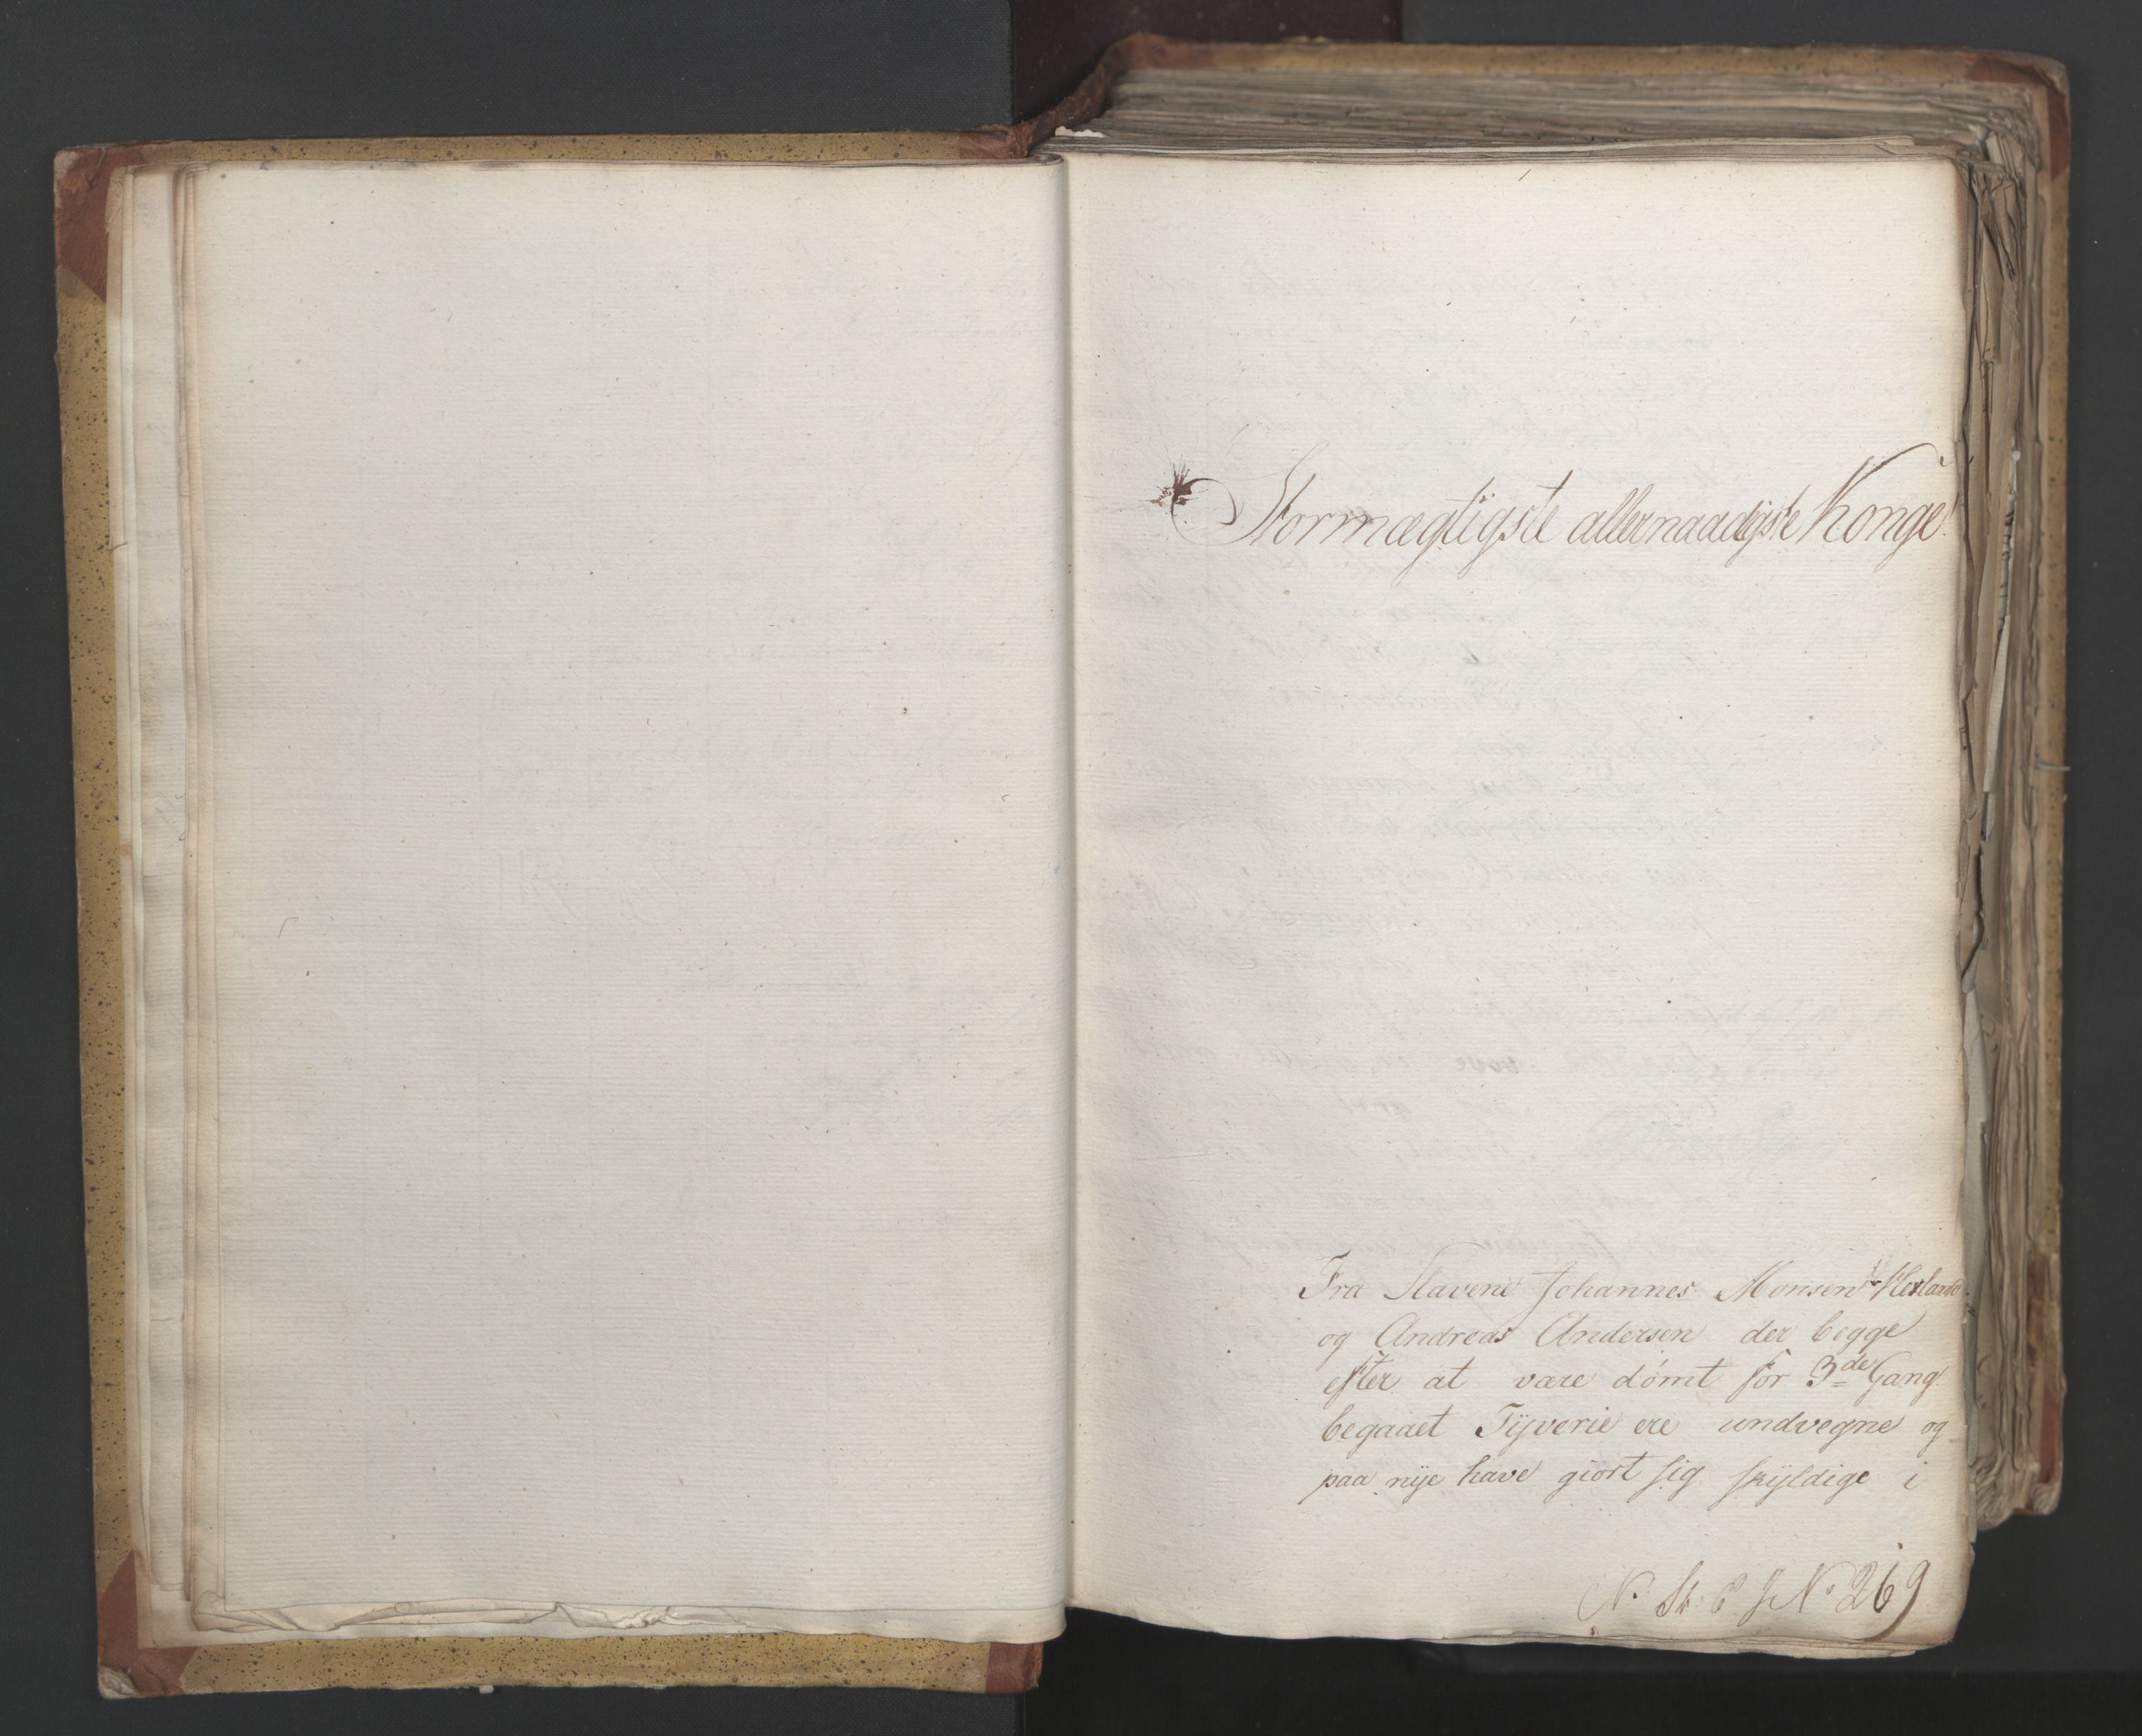 Stormægtigste allernaadigste Konge!
Fra Slavene Johannes Monsen Herland
og Andreas Andersen der begge
efter at være dømt for 3de Gang
begaaet Tyverie ere undvegne og
paa nye have giort sig skyldige i
N. St. C J No 269